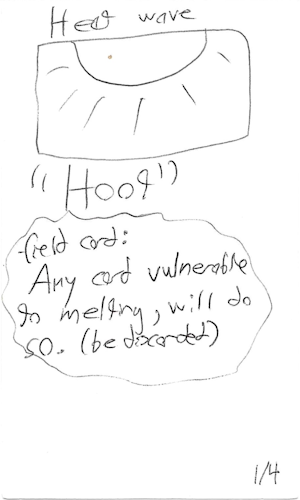 Heat wave
"Hoo9"
field card:
Any card vulnerable
to melting, will do
so. (be discarded)
1/4